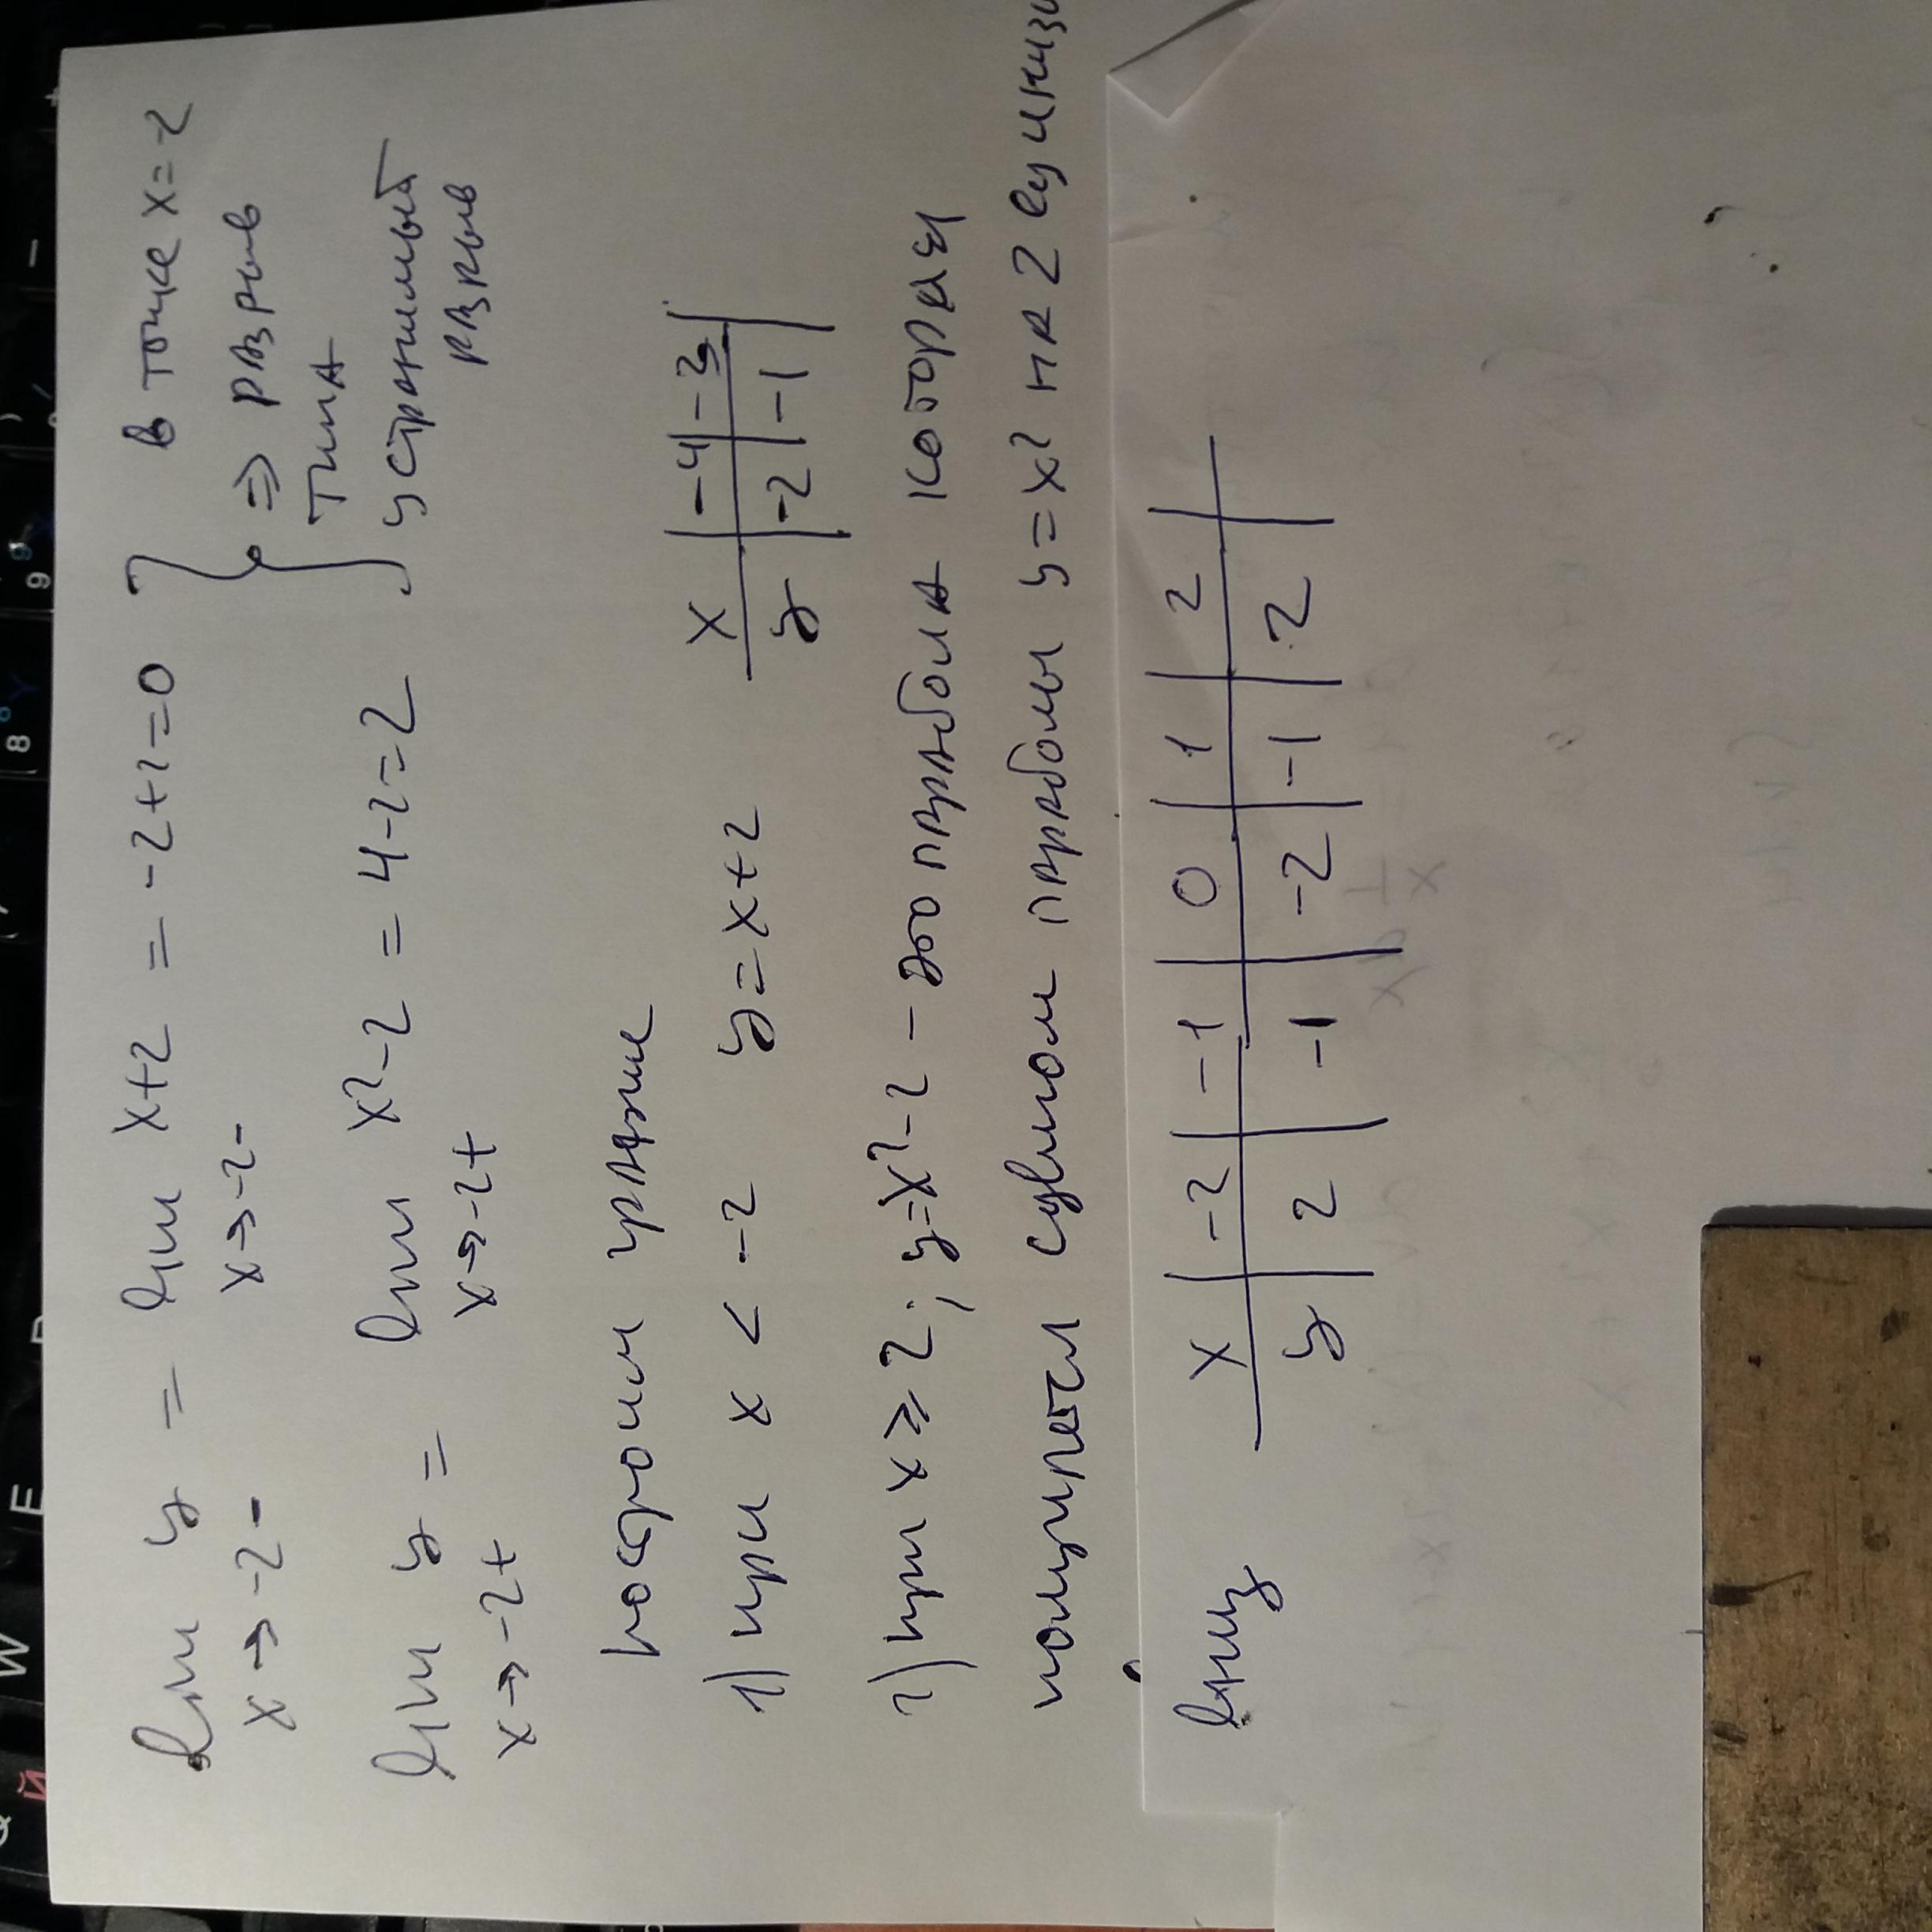 lim y = lim x+2 = -2+2=0 } в точке x=-2
x→-2- x→-2- => разрыв
типа
lim y = lim x²-2 = 4-2=2 устранимый
x→-2+ x→-2+ разрыв
построим график
1) при x < -2 y=x+2
x | -4 | -3 |
y | -2 | -1 |
2) при x ≥ 2; y=x²-2 - это парабола которая
получается сдвигом параболы y=x² на 2 единиц
вниз
x | -2 | -1 | 0 | 1 | 2 |
y | 2 | -1 | -2 | -1 | 2 |